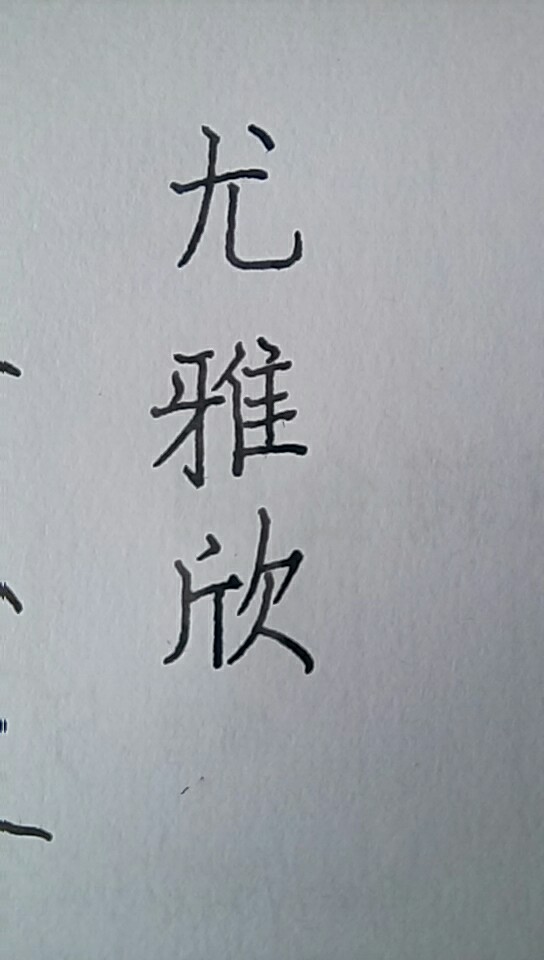 尤雅欣